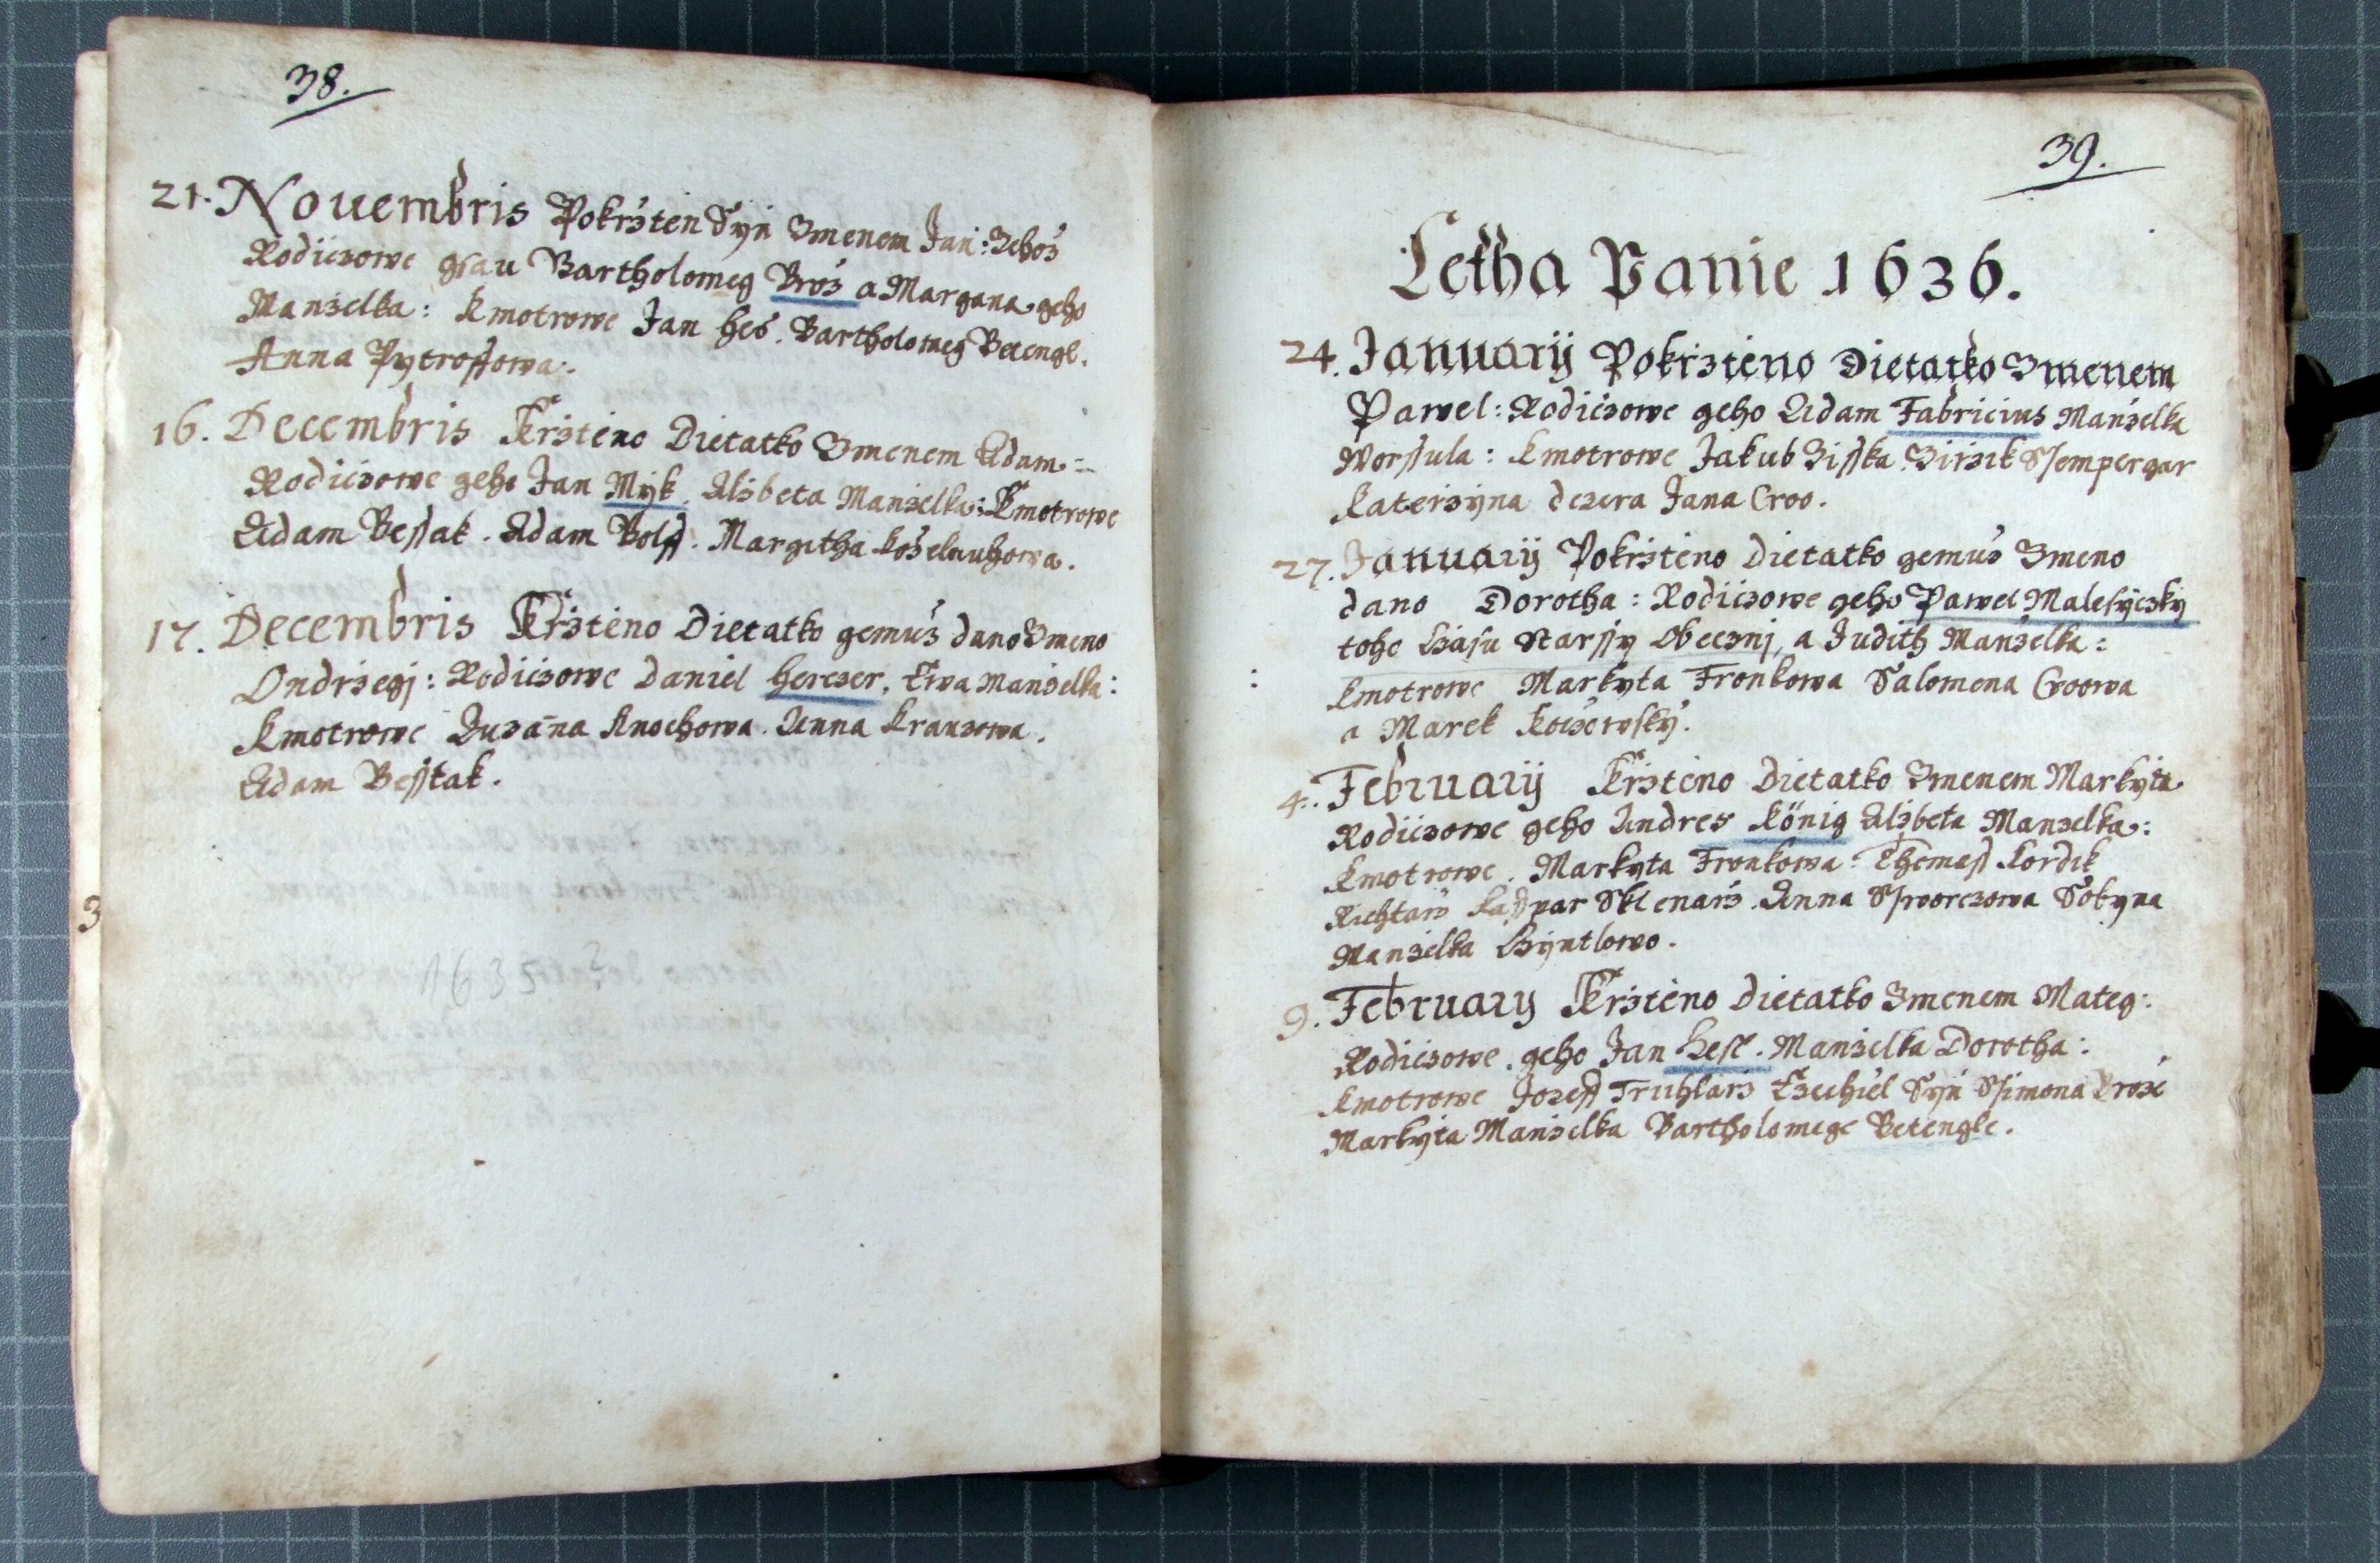 38.
21. Nouembris Pokrżten Syn Zmenem Jan: Gehoż
Rodiczowe gsau Bartholomeg Broż a Margana geho
Manżelka: Kmotrowe Jan Heś. Bartholomeg Betengl.
Anna Pytrossowa.
16. Decembris Krżtěno Dietatko Zmenem Adam:
Rodiczowe geho Jan Myk. Alżbeta Manżelka: Kmotrowe
Adam Bessak. Adam Bolss. Margitha Koželuuhowa.
17. Decembris Krżtěno Dietatko gemuż dano Zmeno
Ondrżegj: Rodiczowe Daniel Herczer, Ewa Manżelka:
Kmotrowe Zuzāna Knochowa. Anna Krauzowa.
Adam Besstak.
3
1635?
39.
Letha Panie 1636.
24. Januarij Pokrżtěno Dietatko Zmenem
Pawel: Rodiczowe geho Adam Fabricius Manżelka
Worssula: Kmotrowe Jakub Zisska Girzik Ssempergar
Katerżyna dczera Jana Croo.
27. Januarij Pokrżtěno Dietatko gemuż Zmeno
dano Dorotha: Rodiczowe geho Pawel Malesyczky
toho Cżasu Starssy Obecznj, a Judith Manżelka:
Kmotrowe Markyta Fronkowa Salomena Croowa
a Marek Kocżowsky.
4. Februarij Krżtěno Dietatko Zmenem Markyta
Rodiczowe geho Andres König Alżbeta Manżelka:
Kmotrowe. Markyta Fronkowa. Thomass Kordik
Richtarż Kasspar Sklenarż. Anna Ssworczowa Sobyna
Manżelka Cżyntlowo.
9. February Krżtěno Dietatko Zmenem Mateg:
Rodiczowe. geho Jan Hesl. Manżelka Dorotha:
Kmotrowe Jozeff Truhlarż Ezechiel Syn Ssimona Broże
Markyta Manżelka Bartholomege Betengle.